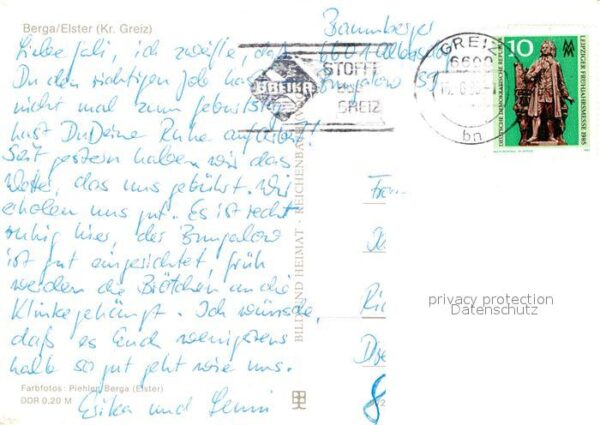 Berga/Elster (Kr. Greiz)
Baumberger
Liebe Juli, ich zweifle, daß
6601 Albersdorf
Du den richtigen Job hast
Bungalow 59
nicht mal zum Geburtstag
hast Du Deine Ruhe auf Arbeit!
Seit gestern haben wir das
Wetter, das uns gebührt. Wir
erholen uns gut. Es ist recht
ruhig hier, der Bungalow
ist gut eingerichtet, früh
werden die Brötchen an die
Klinke gehängt. Ich wünsche,
daß es Euch wenigstens
halb so gut geht wie uns.
Erika und
Farbfotos: Piehler, Berga (Elster)
DDR 0,20 M
BILD UND HEIMAT · REICHENBACH
STOFFE
AUS
GREIZ
GREIZ
6600
bn
10
LEIPZIGER FRÜHJAHRSMESSE 1985
DEUTSCHE DEMOKRATISCHE REPUBLIK
privacy protection
Datenschutz